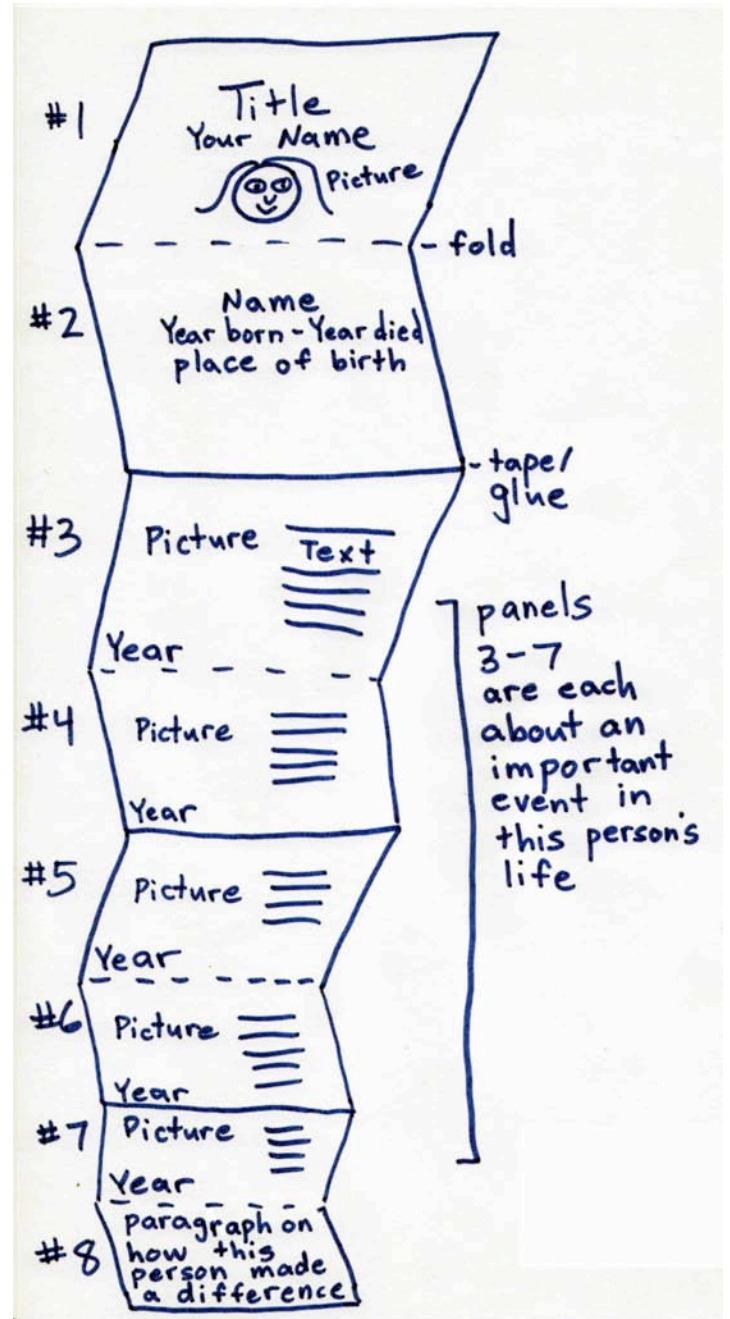 #1
Title
Your Name
Picture
- fold
#2
Name
Year born - Year died
place of birth
- tape/
glue
#3
Picture
Text
Year
#4
Picture
Year
panels
3-7
are each
about an
important
event in
this person's
life
#5
Picture
Year
#6
Picture
Year
#7
Picture
Year
#8
paragraph on
how this
person made
a difference